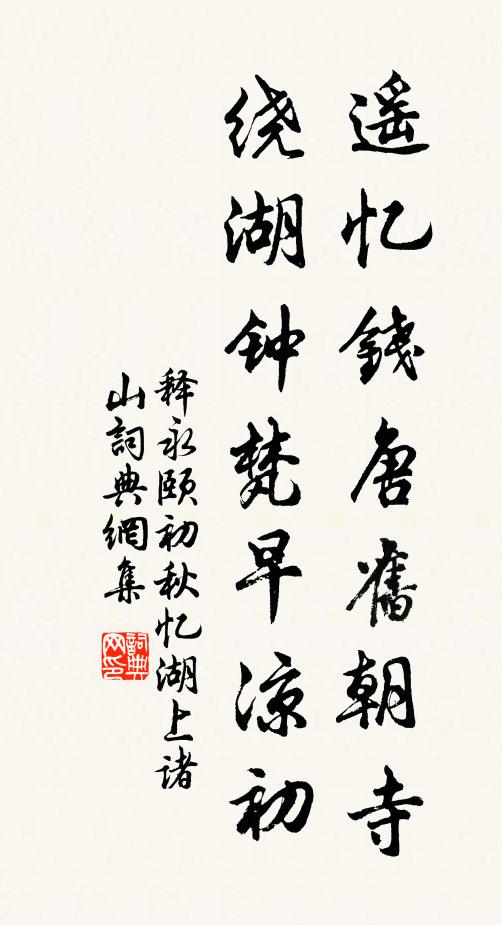 遥忆錢唐舊朝寺
绕湖钟梵早凉初
释永颐初秋忆湖上诸
山詞典網集
詞典
网印